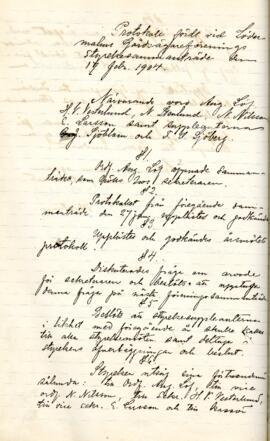 Protokoll fördt vid Söder-
malms Gårdsägareförenings
styrelsesammanträde den
17 Febr. 1904.
Närvarande voro Aug. Löf,
H. P. Vesterlund, N. Nilsson
E. Larsson samt suppleanterna
Sjöblom och F. G. Sjöberg.
§1.
Ordf. Aug. Löf öppnade samman-
trädet, som sekreteraren.
§2.
Protokollet från föregående samman-
träde den 27 jan. upplästes och godkändes
§3.
Upplästes och godkändes
protokoll.
§4.
Diskuterades fråga om arvode
för sekreteraren och beslöts att upptaga
denna fråga på näst föreningssammanträde
§5.
Beslöts att styrelsesuppleanterna
i likhet med föregående år skulle kallas
till alla styrelsemöten samt deltaga i
styrelsens öfverläggningar och beslut.
§6.
Styrelsen utsåg sina förtroendemän
sålunda: Till Ordf. Aug. Löf, till vice
ordf. N. Nilsson, till sekr. H. P. Vesterlund,
till vice sekr. E. Larsson och till kassör